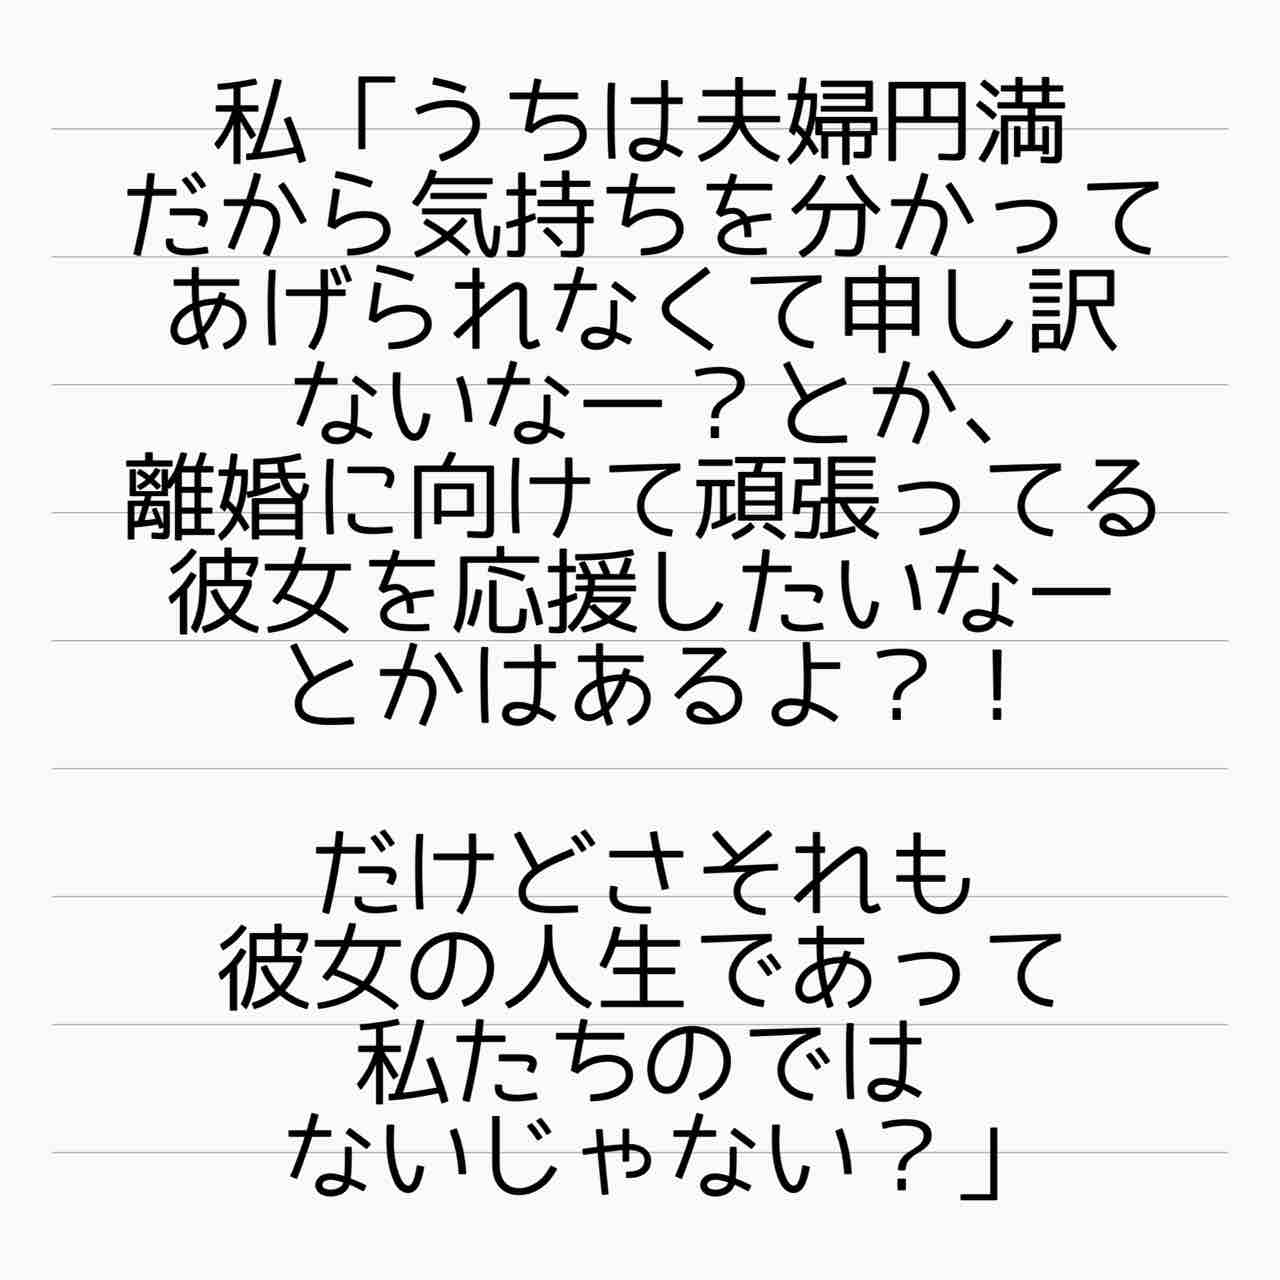 私「うちは夫婦円満
だから気持ちを分かって
あげられなくて申し訳
ないなー？とか、
離婚に向けて頑張ってる
彼女を応援したいなー
とかはあるよ？！
だけどさそれも
彼女の人生であって
私たちのでは
ないじゃない？」